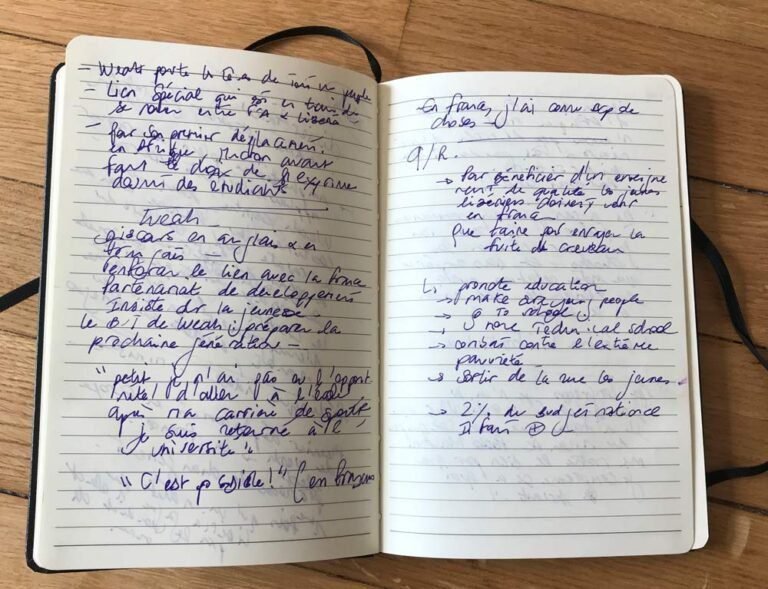 - Weah porte le de tout un peuple
- Lien Spécial qui est en train de
se nouer entre & Libéria
- Pour son premier déplacement
en Afrique Macron avait
fait le choix de s'exprimer
devant des étudiants
Weah
discours en anglais & en
français -
renforcer le lien avec la France
partenariat de développement
Insiste sur la jeunesse -
le BUT de Weah : préparer la
prochaine génération -
"petit je n'ai pas eu l'opport
unité d'aller à l'école
après ma carrière de sportif
je suis retourné à l'
université"
"C'est possible!" (en français
En France, j'ai connu bcp de
choses
Q/R.
→ Pour bénéficier d'un enseigne
ment de qualité les jeunes
libériens doivent venir
en France
Que faire pour enrayer la
fuite des cerveaux
↳ promote education
→ make our young people
→ go to school
→ more technical school
→ combat contre l'extrême
pauvreté
→ sortir de la rue les jeunes
→ 2% du budget national
Il faut ⊕